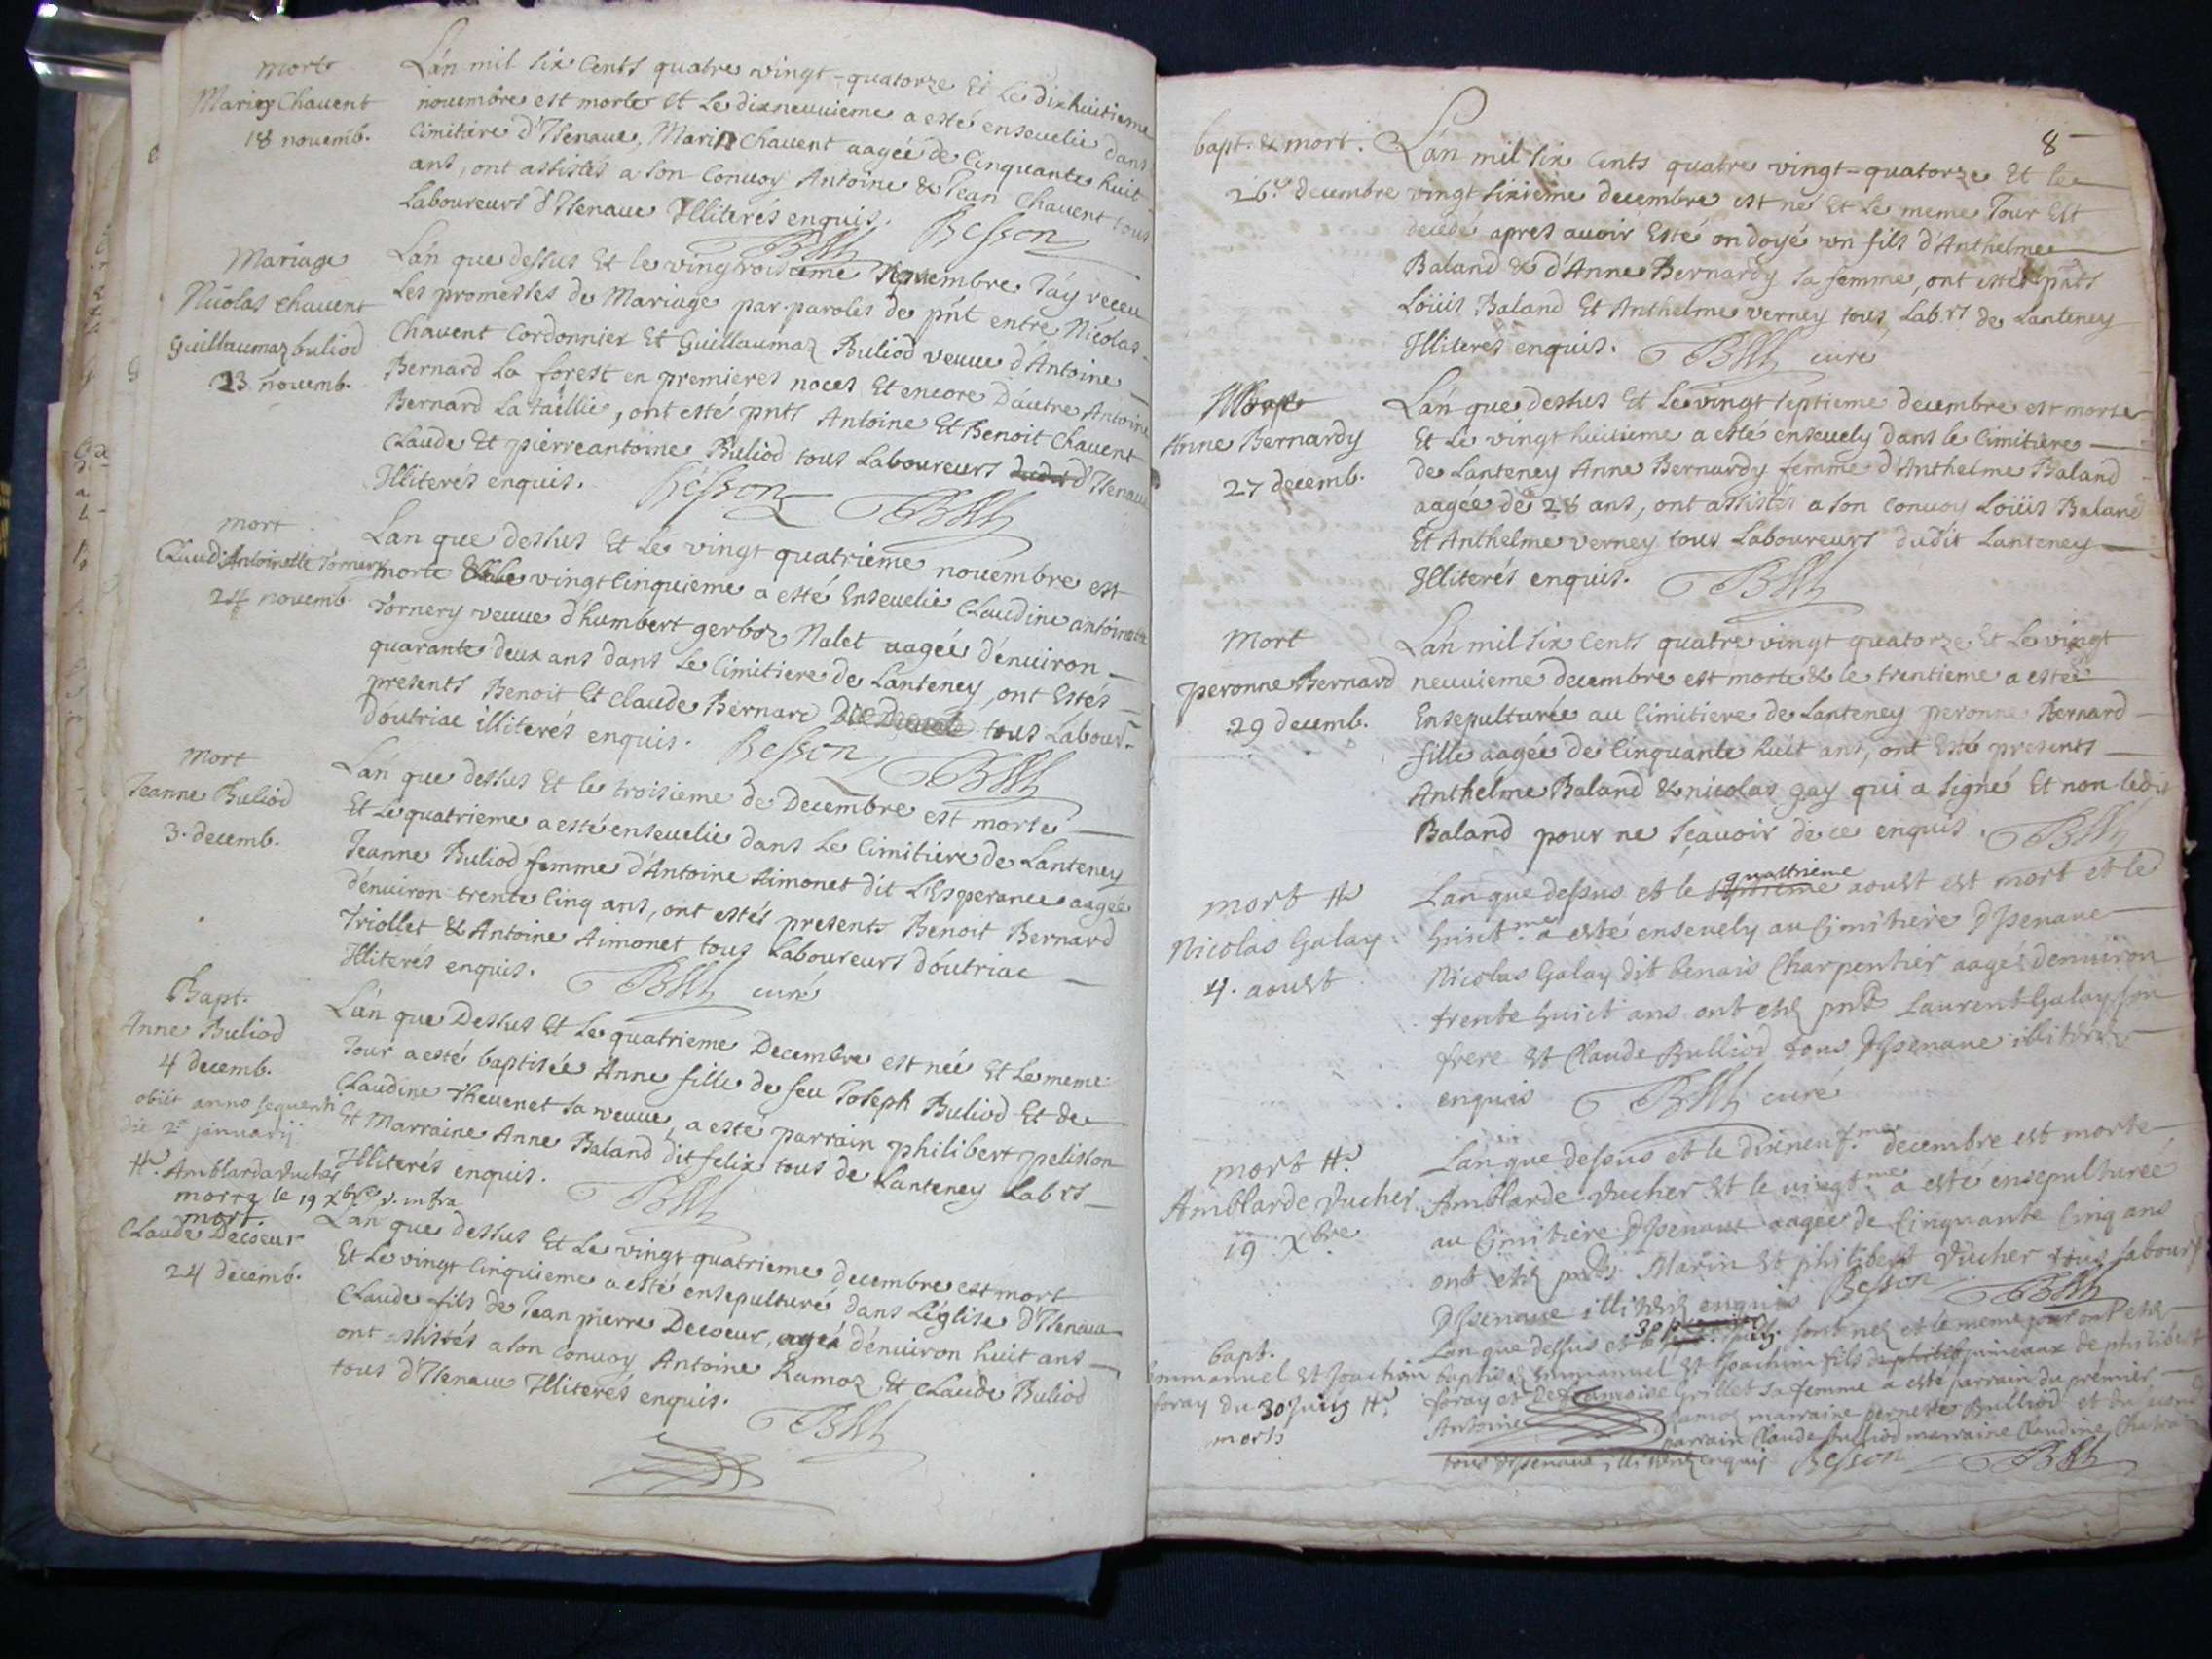 mort
Marie Chavent
18 novemb.
L'an mil six cents quatre vingt-quatorze Et le dixhuitieme
novembre est morte et Le dixneuvieme a esté ensevelie dans
Cimitiere d'Isenave, Marie Chavent aagée de Cinquante huit
ans, ont assistés a son Convoy Antoine & Jean Chavent tous
Laboureurs d'Isenave Illiterés enquis. Besson
Mariage
Nicolas Chavent
Guillaumaz buliod
23 novemb.
L'an que dessus Et le vingtroisieme Novembre J'ay receu
Les promesses de Mariage par paroles de pñt entre Nicolas
Chavent Cordonnier Et Guillaumaz Buliod veuve d'Antoine
Bernard La forest en premieres noces Et encore d'autre Antoine
Bernard La taillie, ont esté pnts Antoine Et Benoit Chavent
Claude Et pierreantoine Buliod tous Laboureurs dudit d'Isenave
Illiterés enquis. Besson
mort
Claud'Antoinette Tornery
24 novemb.
L'an que dessus Et Le vingt quatrieme novembre est
morte Et le vingt Cinquieme a esté Ensevelie Claudine antoinette
Tornery veuve d'humbert gerboz Nalet aagée d'environ
quarante deux ans dans Le Cimitiere de Lanteney, ont Estés
presents Benoit Et Claude Bernard tous Labour.
d'outriac illiterés enquis. Besson
Mort
Jeanne Buliod
3. decemb.
L'an que dessus Et le troisieme de Decembre est morte
Et Le quatrieme a esté ensevelie dans Le Cimitiere de Lanteney
Jeanne Buliod femme d'Antoine Aimonet dit L'Esperance aagée
d'environ trente Cinq ans, ont estés presents Benoit Bernard
Triollet & Antoine Aimonet tous Laboureurs d'outriac
Illiterés enquis. curé
Bapt.
Anne Buliod
4 decemb.
obiit anno sequenti
die 2a januarij
L'an que Dessus Et Le quatrieme Decembre est née Et Le meme
Jour a esté baptisée Anne fille de feu Joseph Buliod Et de
Claudine Thevenet sa veuve, a esté parrain philibert pelisson
Et Marraine Anne Baland dit felix tous de Lanteney Lab.rs
Illiterés enquis.
Amblarda Vucher
morte le 19 Xbre v. infra
mort.
Claude Decoeur
24 decemb.
L'an que dessus Et Le vingt quatrieme decembre est mort
Et Le vingt Cinquieme a esté ensepulturé dans L'église d'Isenave
Claude fils de Jean pierre Decoeur, agés d'environ huit ans
ont assistés a son Convoy Antoine Ramoz Et Claude Buliod
tous d'Isenave Illiterés enquis.
8
bapt. & mort.
26e decembre
L'an mil six Cents quatre vingt-quatorze Et le
vingt sixieme decembre est né Et Le meme Jour Est
decedé apres avoir Esté ondoyé un fils d'Anthelme
Baland & d'Anne Bernardy sa femme, ont estés pnts
Loüis Baland Et Anthelme verney tous Lab.rs de Lanteney
Illiterés enquis. curé
Mort
Anne Bernardy
27 decemb.
L'an que dessus Et Le vingt septieme decembre est morte
Et Le vingt huitieme a esté ensevely dans le Cimitiere
de Lanteney Anne Bernardy femme d'Anthelme Baland
aagée de 28 ans, ont assistés a son convoy Loüis Baland
Et Anthelme verney tous Laboureurs dudit Lanteney
Illiterés enquis.
Mort
peronne Bernard
29 decemb.
L'an mil six Cents quatre vingt quatorze Et Le vingt
neuvieme decembre est morte & le trentieme a esté
Ensepulturée au Cimitiere de Lanteney peronne Bernard
fille aagée de Cinquante huit ans, ont Esté presents
Anthelme Baland & nicolas gay qui a signé Et non ledit
Baland pour ne sçavoir de ce enquis.
mort
Nicolas Galay
4. aoust
Lan que dessus et le quattrieme aoust est mort et le
huict.me a esté ensevely au Cimitiere D'Isenave
Nicolas Galay dit benais Charpentier aagé denviron
trente huict ans ont etez pnts Laurent Galay son
frere Et Claude Bulliod tous D'Isenave illiterez
enquis curé
mort
Amblarde Vucher
19 Xbre
Lan que dessus et le dixneuf.me decembre est morte
Amblarde Vucher Et le vingt.me a esté ensepulturée
au Cimitiere D'Isenave aagée de Cinquante Cinq ans
ont etez pnts Marin Et philibert Vucher tous labour.
D'Isenave illiterez enquis Besson
bapt.
Emmanuel Et Joachim
foray du 30 Juin
morts
Lan que dessus et le 30 Juin sont nez et le meme jour ont etez
baptisez Emmanuel Et Joachim fils jumeaux de philibert
foray et de francoise Grillet sa femme a esté parrain du premier
Antoine Ramoz marraine pernette Bulliod et du second
parrain Claude Bulliod marraine Claudine
tous D'Isenave, illiterez enquis Besson